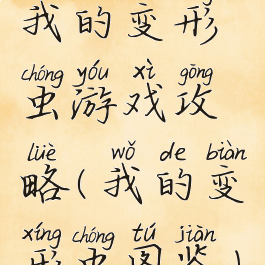 我的变形
chóng yóu xì gōng
虫游戏攻
lüè wǒ de biàn
略(我的变
xíng chóng tú jiàn
形虫图鉴)